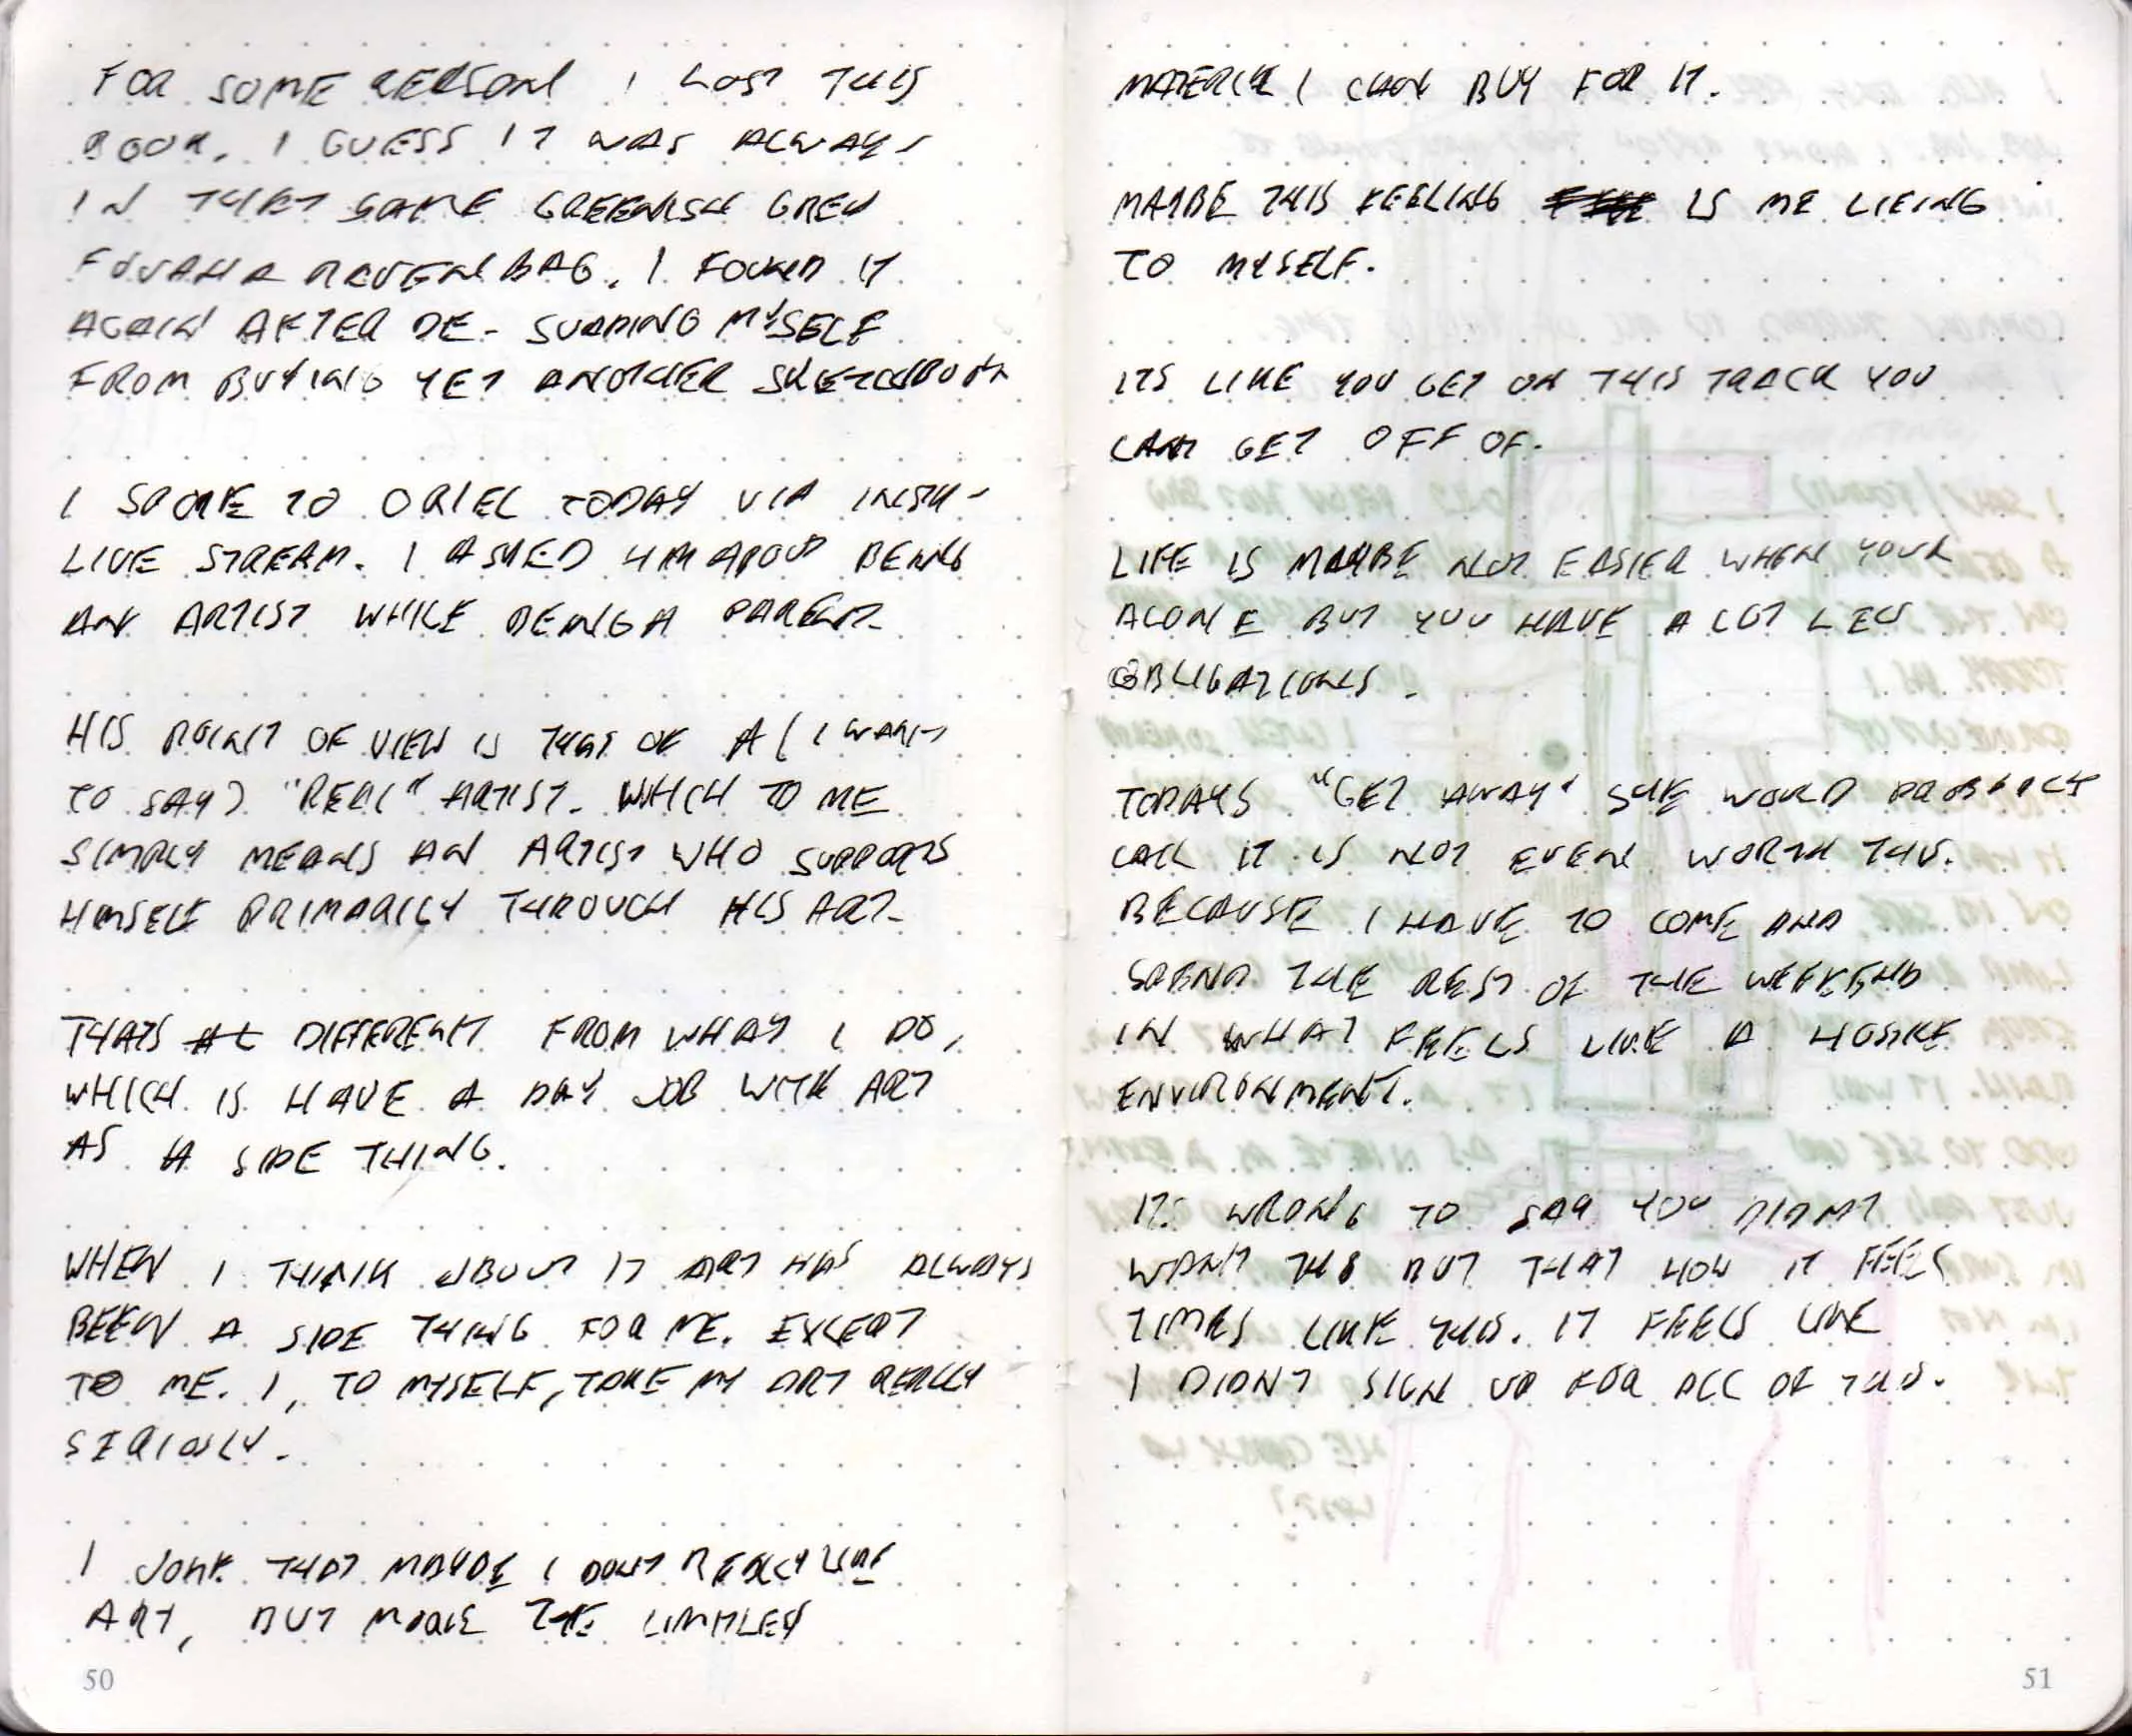 FOR SOME REASON I LOST THIS
BOOK. I GUESS IT WAS ALWAYS
IN THAT SAME GREENISH GREY
BAG. I FOUND IT
AGAIN AFTER DE-SUADING MYSELF
FROM BUYING YET ANOTHER SKETCHBOOK
I SPOKE TO ORIEL TODAY VIA INSTA-
LIVE STREAM. I ASKED HIM ABOUT BEING
AN ARTIST WHILE BEING A PARENT.
HIS POINT OF VIEW IS THAT OF A (I WANT
TO SAY) "REAL" ARTIST. WHICH TO ME
SIMPLY MEANS AN ARTIST WHO SUPPORTS
HIMSELF PRIMARILY THROUGH HIS ART.
THATS DIFFERENT FROM WHAT I DO,
WHICH IS HAVE A DAY JOB WITH ART
AS A SIDE THING.
WHEN I THINK ABOUT IT ART HAS ALWAYS
BEEN A SIDE THING FOR ME. EXCEPT
TO ME. I, TO MYSELF, TAKE MY ART REALLY
SERIOSLY.
I JOKE THAT MAYBE I DONT REALLY LIKE
ART, BUT MORE THE LIMITLESS
MATERIAL I CAN BUY FOR IT.
MAYBE THIS FEELING IS ME LIEING
TO MYSELF.
ITS LIKE YOU GET ON THIS TRACK YOU
CANT GET OFF OF.
LIFE IS MAYBE NOT EASIER WHEN YOUR
ALONE BUT YOU HAVE A LOT LESS
OBLIGATIONS.
TODAYS "GET AWAY" SHE WOULD PROBABLY
CALL IT IS NOT EVEN WORTH THIS.
BECAUSE I HAVE TO COME AND
SPEND THE REST OF THE WEEKEND
IN WHAT FEELS LIKE A HOSTILE
ENVIRONMENT.
ITS WRONG TO SAY YOU DIDNT
WANT THIS BUT THAT HOW IT FEELS
TIMES LIKE THIS. IT FEELS LIKE
I DIDNT SIGN UP FOR ALL OF THIS.
50
51